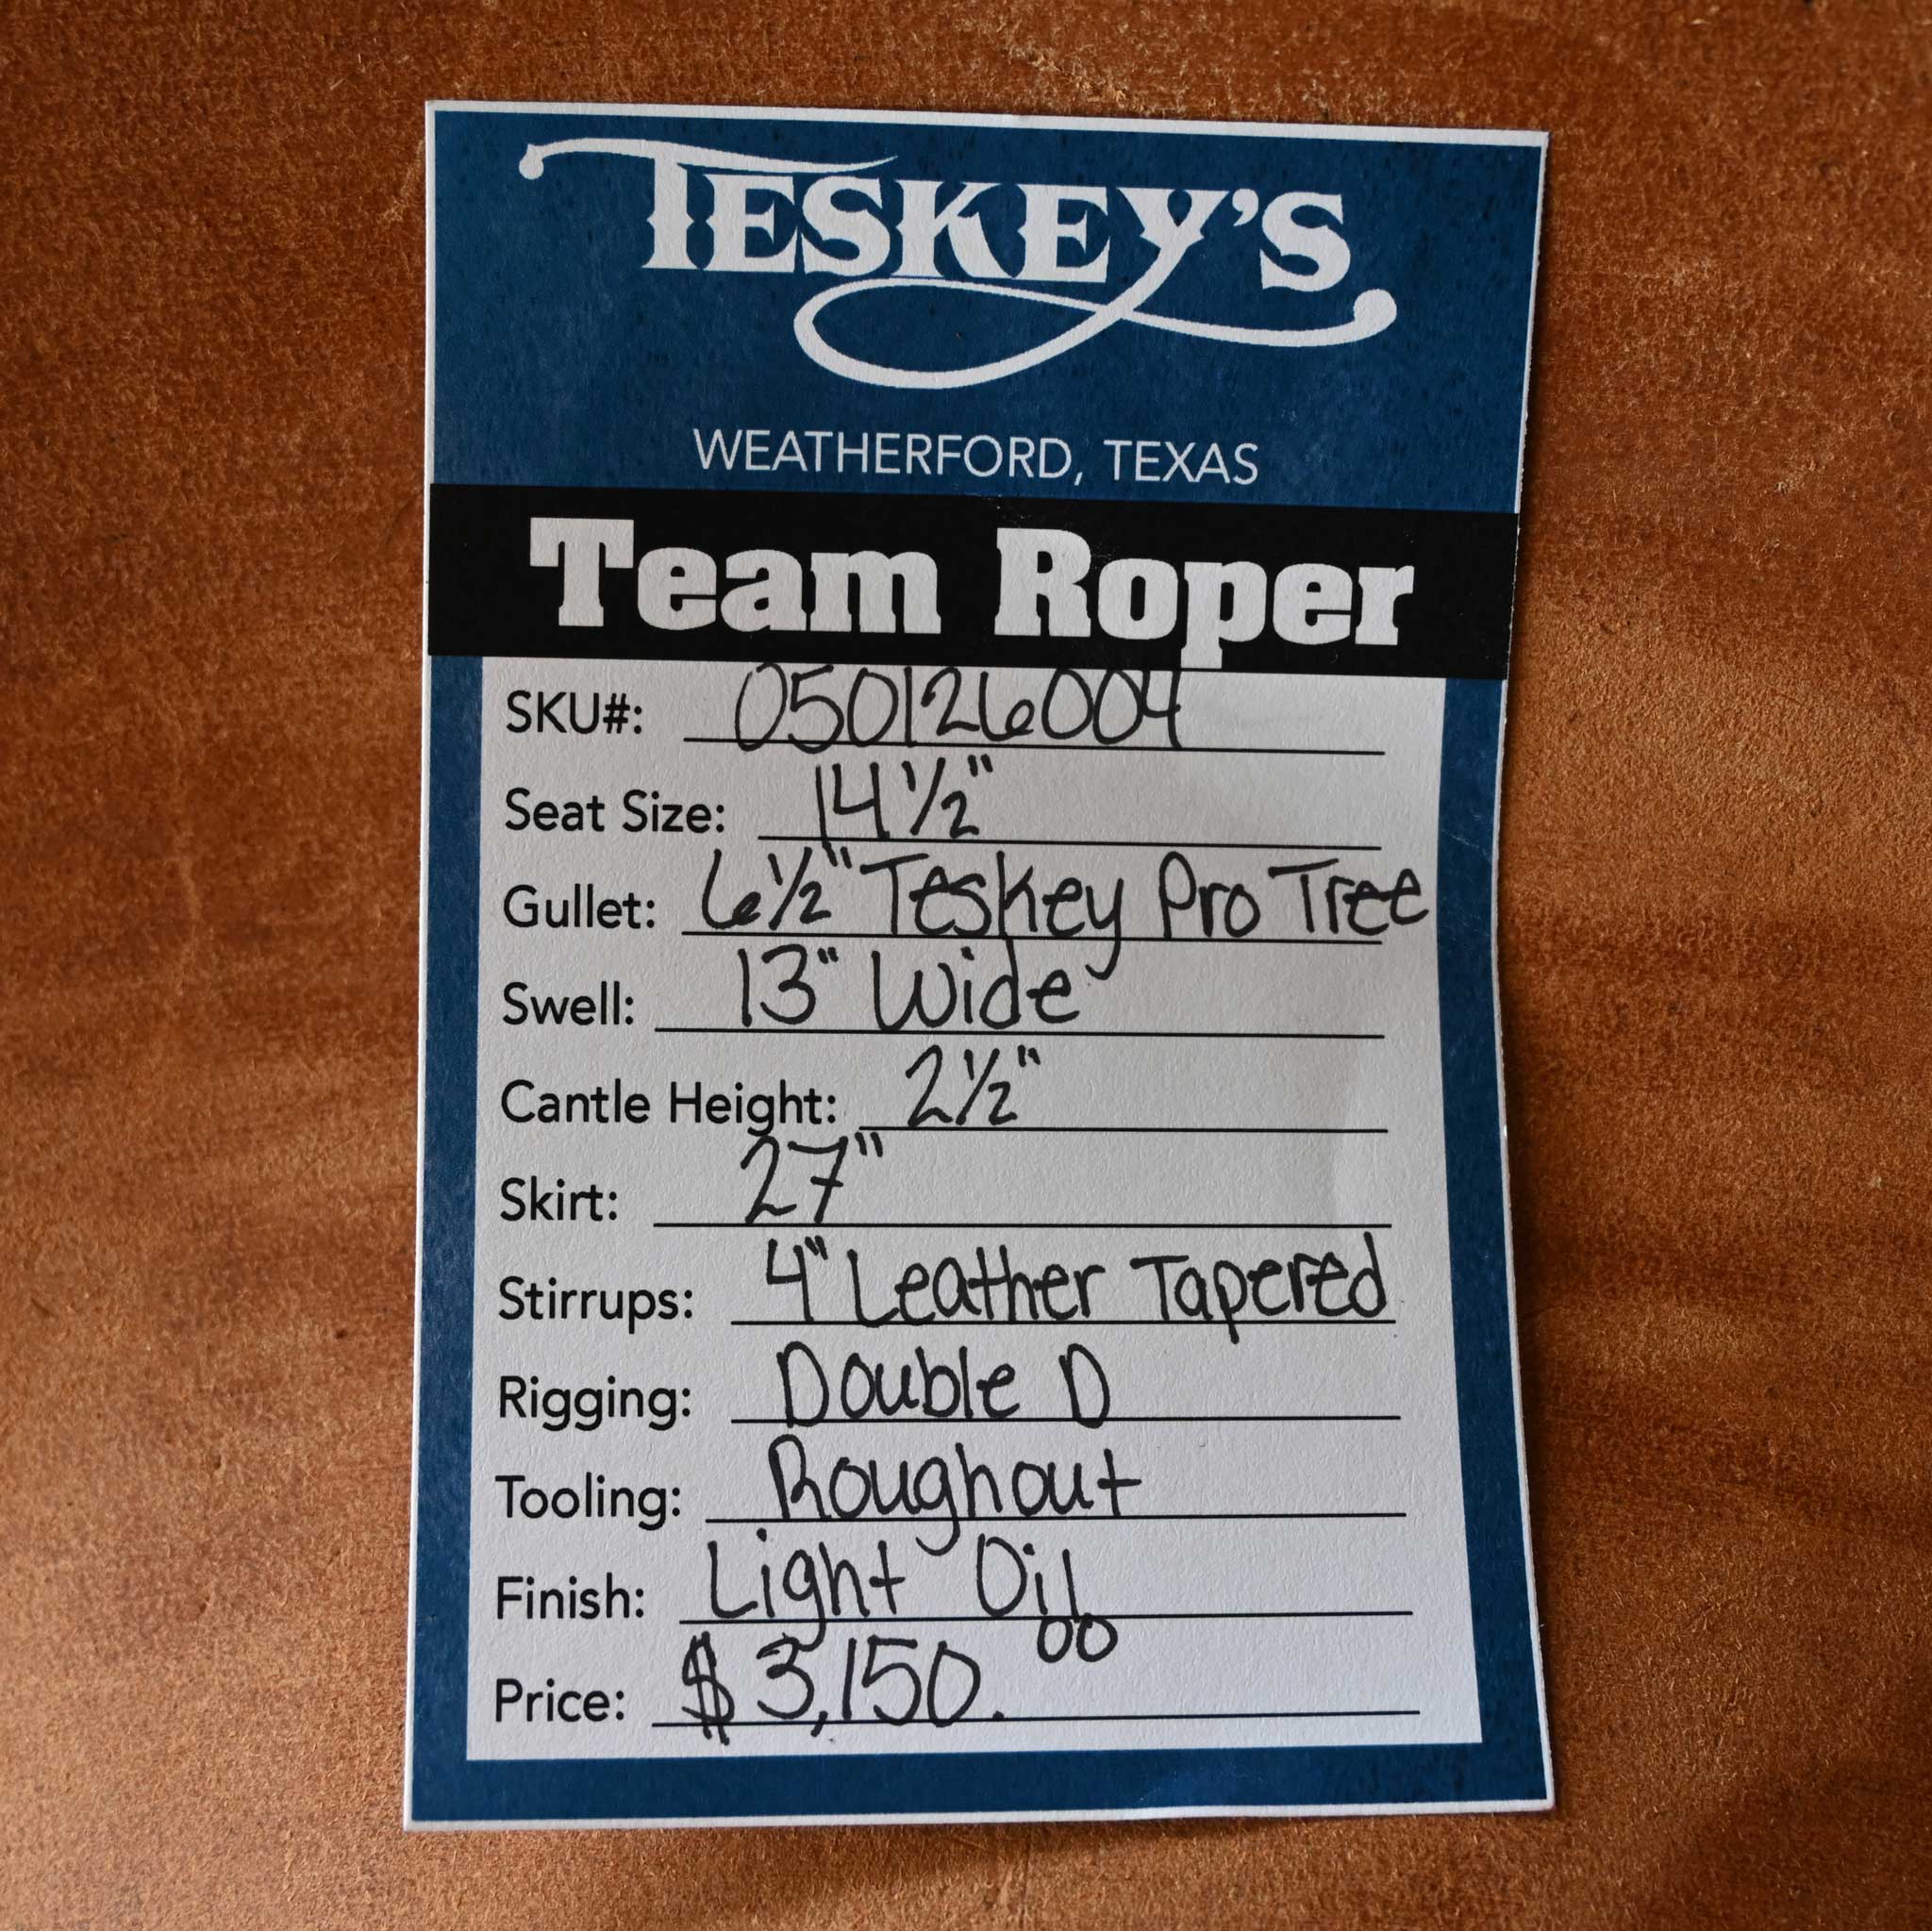 TESKEY'S
WEATHERFORD, TEXAS
Team Roper
SKU#: 050126004
Seat Size: 14 1/2"
Gullet: 6 1/2" Teskey Pro Tree
Swell: 13" Wide
Cantle Height: 2 1/2"
Skirt: 27"
Stirrups: 4" Leather Tapered
Rigging: Double D
Tooling: Roughout
Finish: Light Oil
Price: $3,150.00